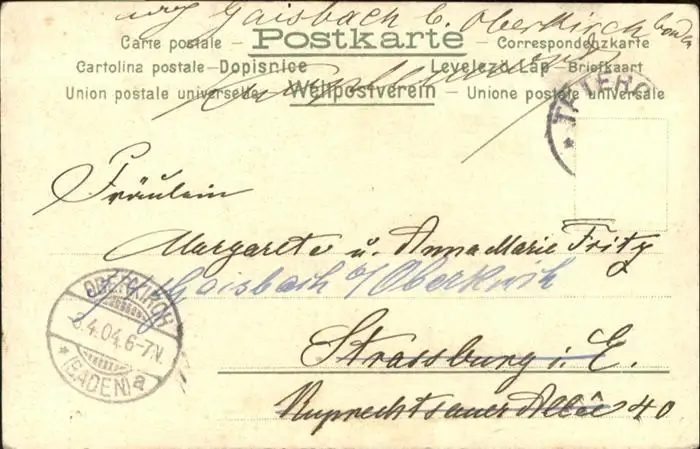 Gaisbach b. Oberkirch
Carte postale – Postkarte – Correspondenzkarte
Cartolina postale – Dopisnice Levelező Lap – Briefkaart
Union postale universelle Weltpostverein – Unione postale universale
TETERC
Fräulein
Margarete u. AnnaMarie Fritz
Gaisbach b/Oberkirch
OBERKIRCH
3.4.04.6-7N.
* (BADEN) a
Strassburg i. E.
Ruprechtsauer Allée 40